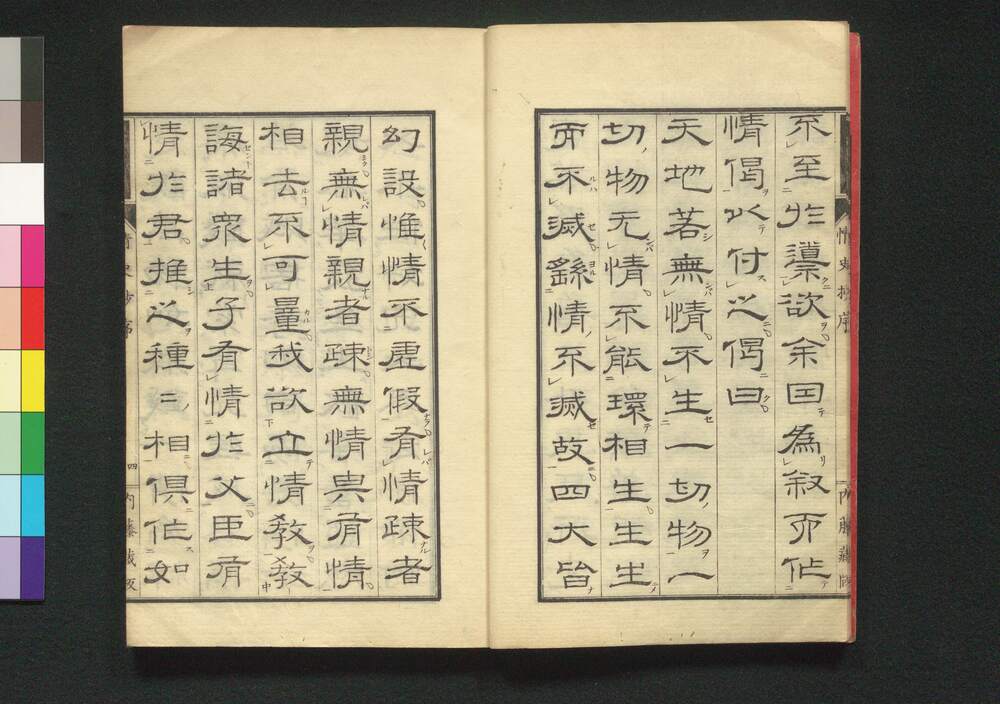 情史抄序
内藤藏版
不至於導欲余因為叙而作
情偈以付之偈曰
天地若無情不生一切物一
切物无情不能環相生生生
而不滅繇情不滅故四大皆
幻設惟情不虛假有情疎者
親無情親者疎無情與有情
相去不可量我欲立情教教
誨諸衆生子有情於父臣有
情於君推之種〻相俱作如
情史抄序
四
内藤藏版